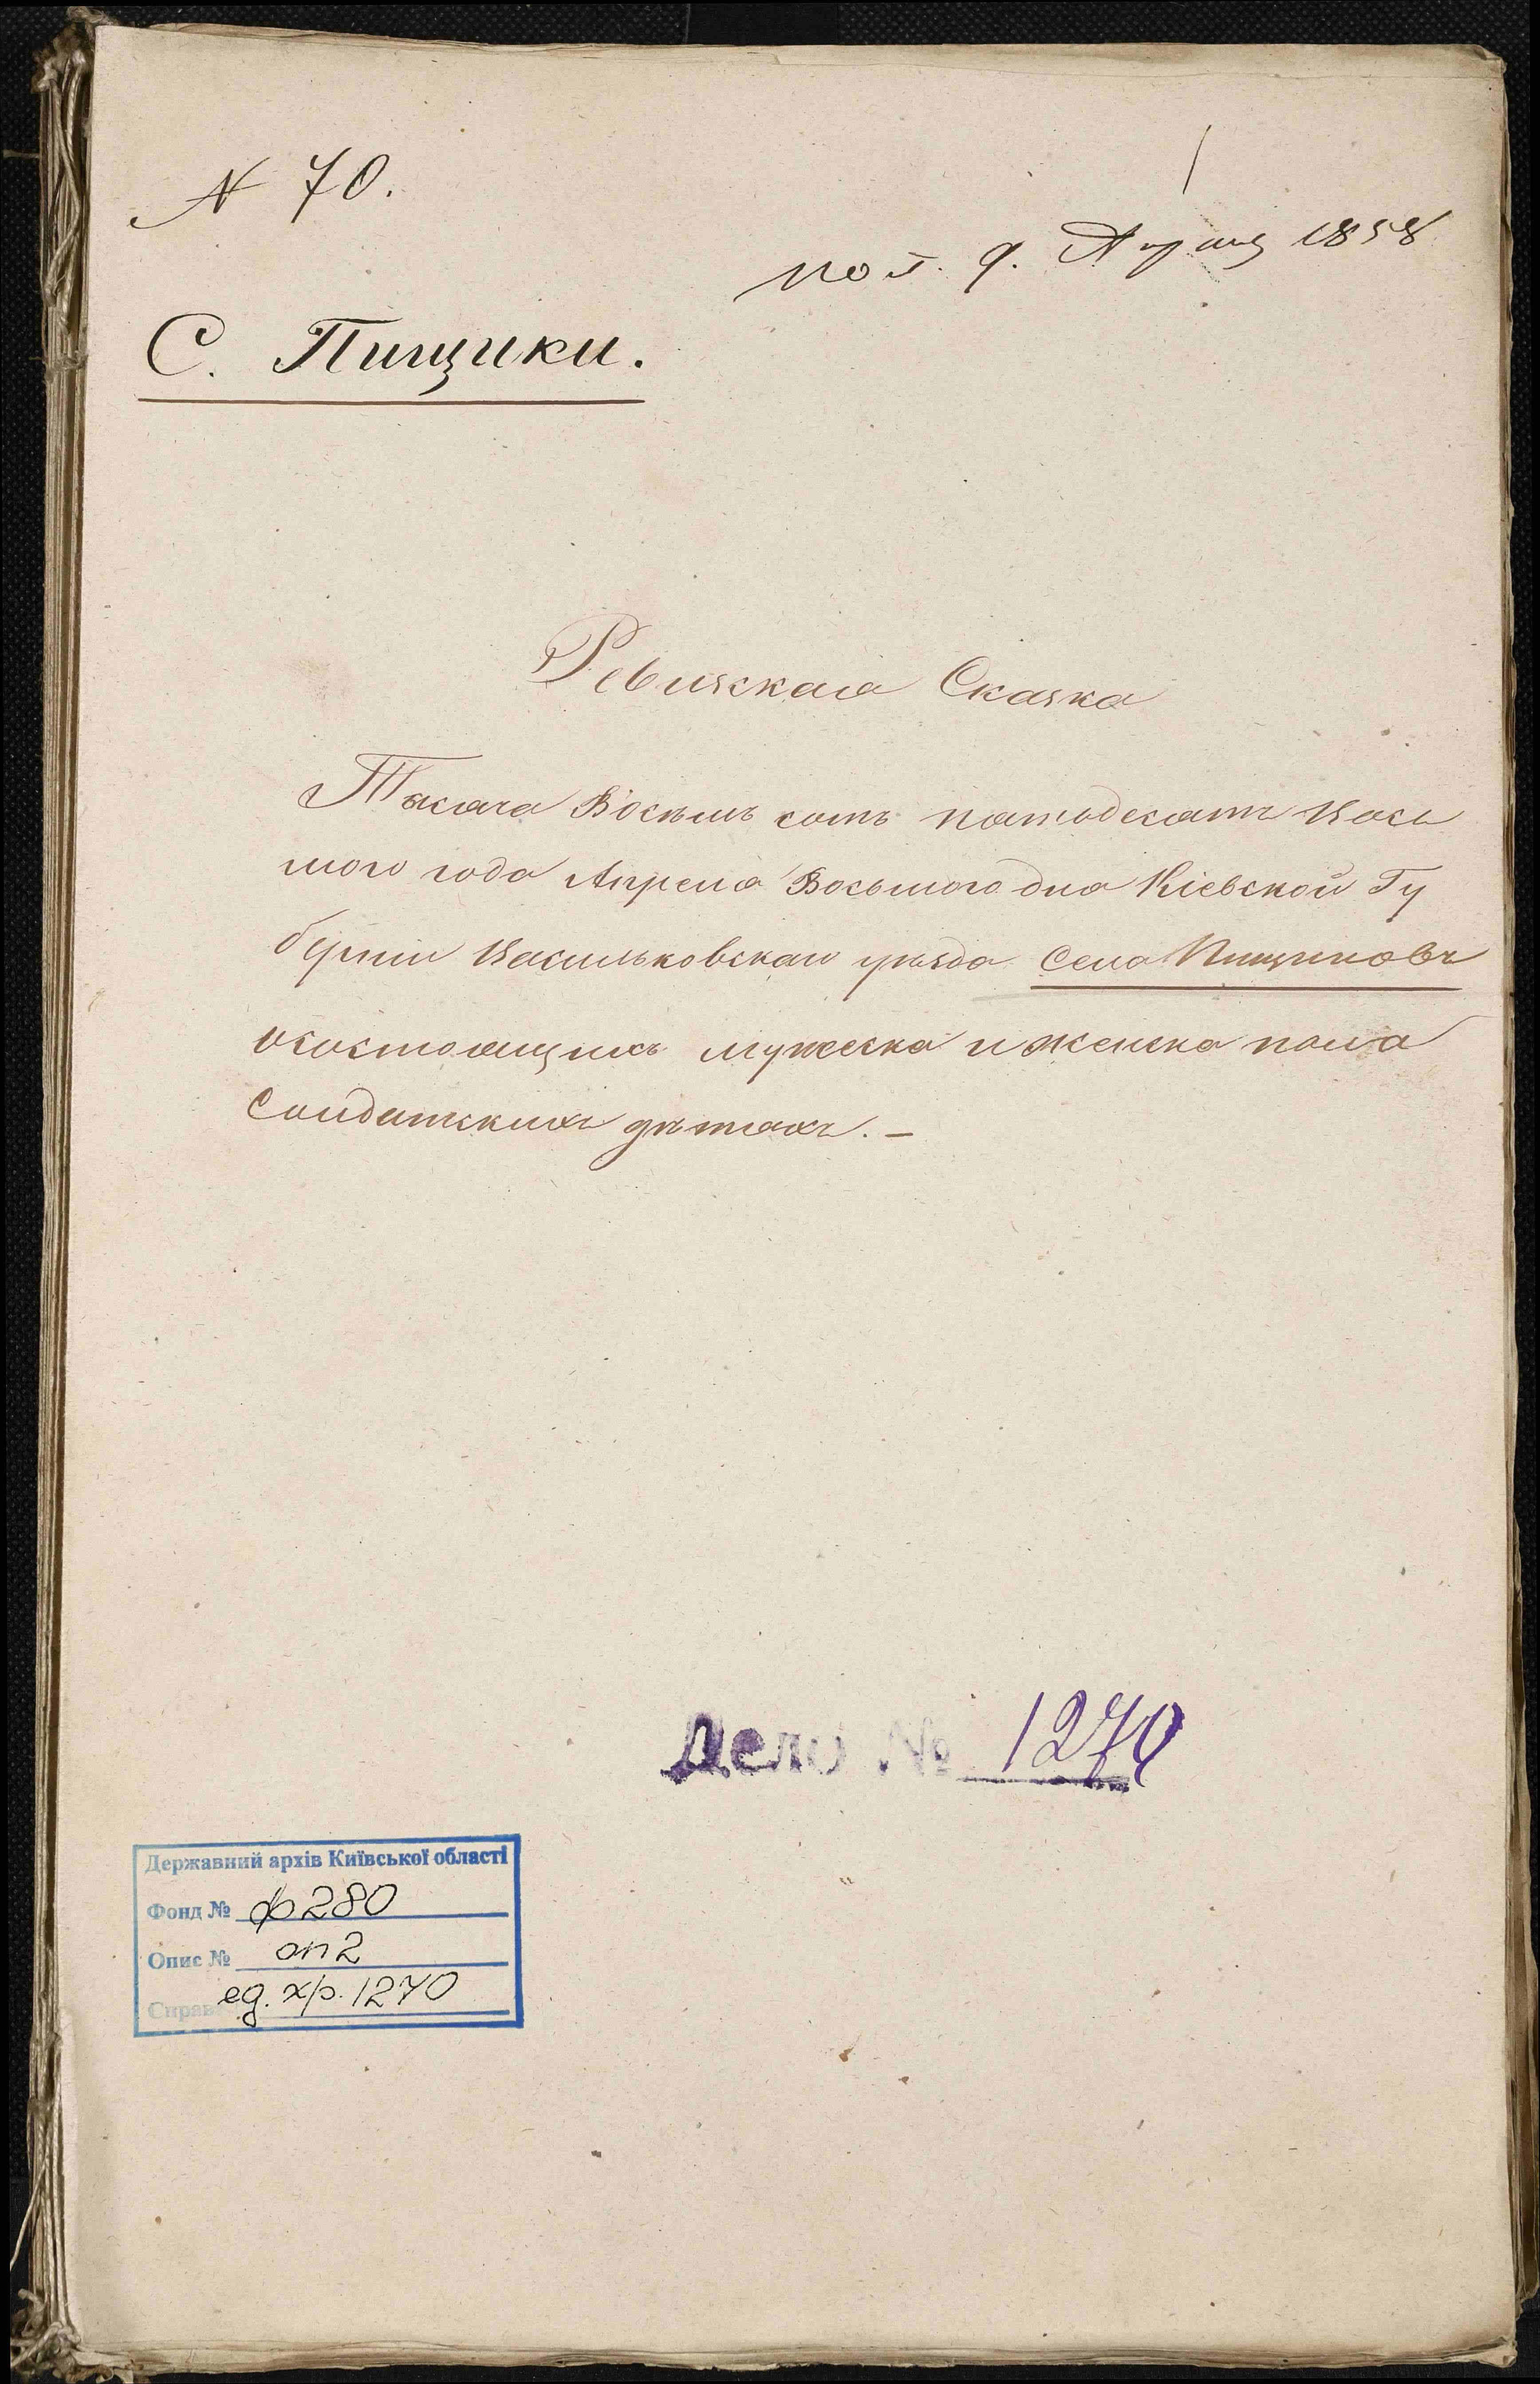 N 70.
пол. 9. Апрля 1858
С. Пищики.
Ревизская Сказка
Тысяча Восемь сотъ пятьдесятъ Вось
мого года Апреля Восьмого дня Кіевской Гу
берніи Васильковскаго уѣзда Села Пищиковъ
осостоящихъ мужеска и женска пола
Солдатскихъ дѣтяхъ. –
Дело № 1270
Державний архів Київської області
Фонд № ф280
Опис № оп2
Справ ед. хр. 1270